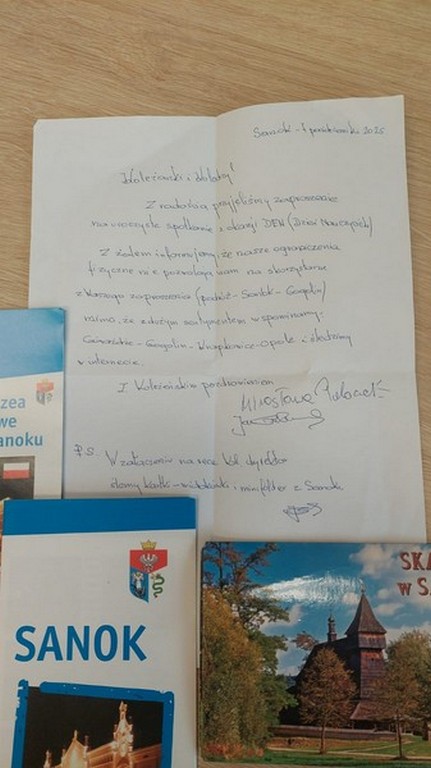 Sanok - 1 październik 2025
Koleżanki i Koledzy!
Z radością przyjęliśmy zaproszenie
na uroczyste spotkanie z okazji DEN (Dzień Nauczyciela)
Z żalem informujemy, że nasze ograniczenia
fizyczne nie pozwalają nam na skorzystanie
z Waszego zaproszenia (podróż - Sanok - Gogolin)
mimo, że z dużym sentymentem wspominamy:
- Gogolin - Krapkowice - Opole i śledzimy
w internecie.
Z Koleżeńskim pozdrowieniem
Mirosława
P.S. W załączeniu na ręce Kol. dyrektor
ślemy kartki - widokówki i mini folder z Sanoka
zea
we
anoku
SANOK
SKA
w S